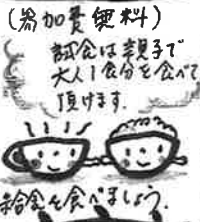 (参加費無料)
試食は親子で
大人1食分を食べて
頂けます.
給食を食べましょう.